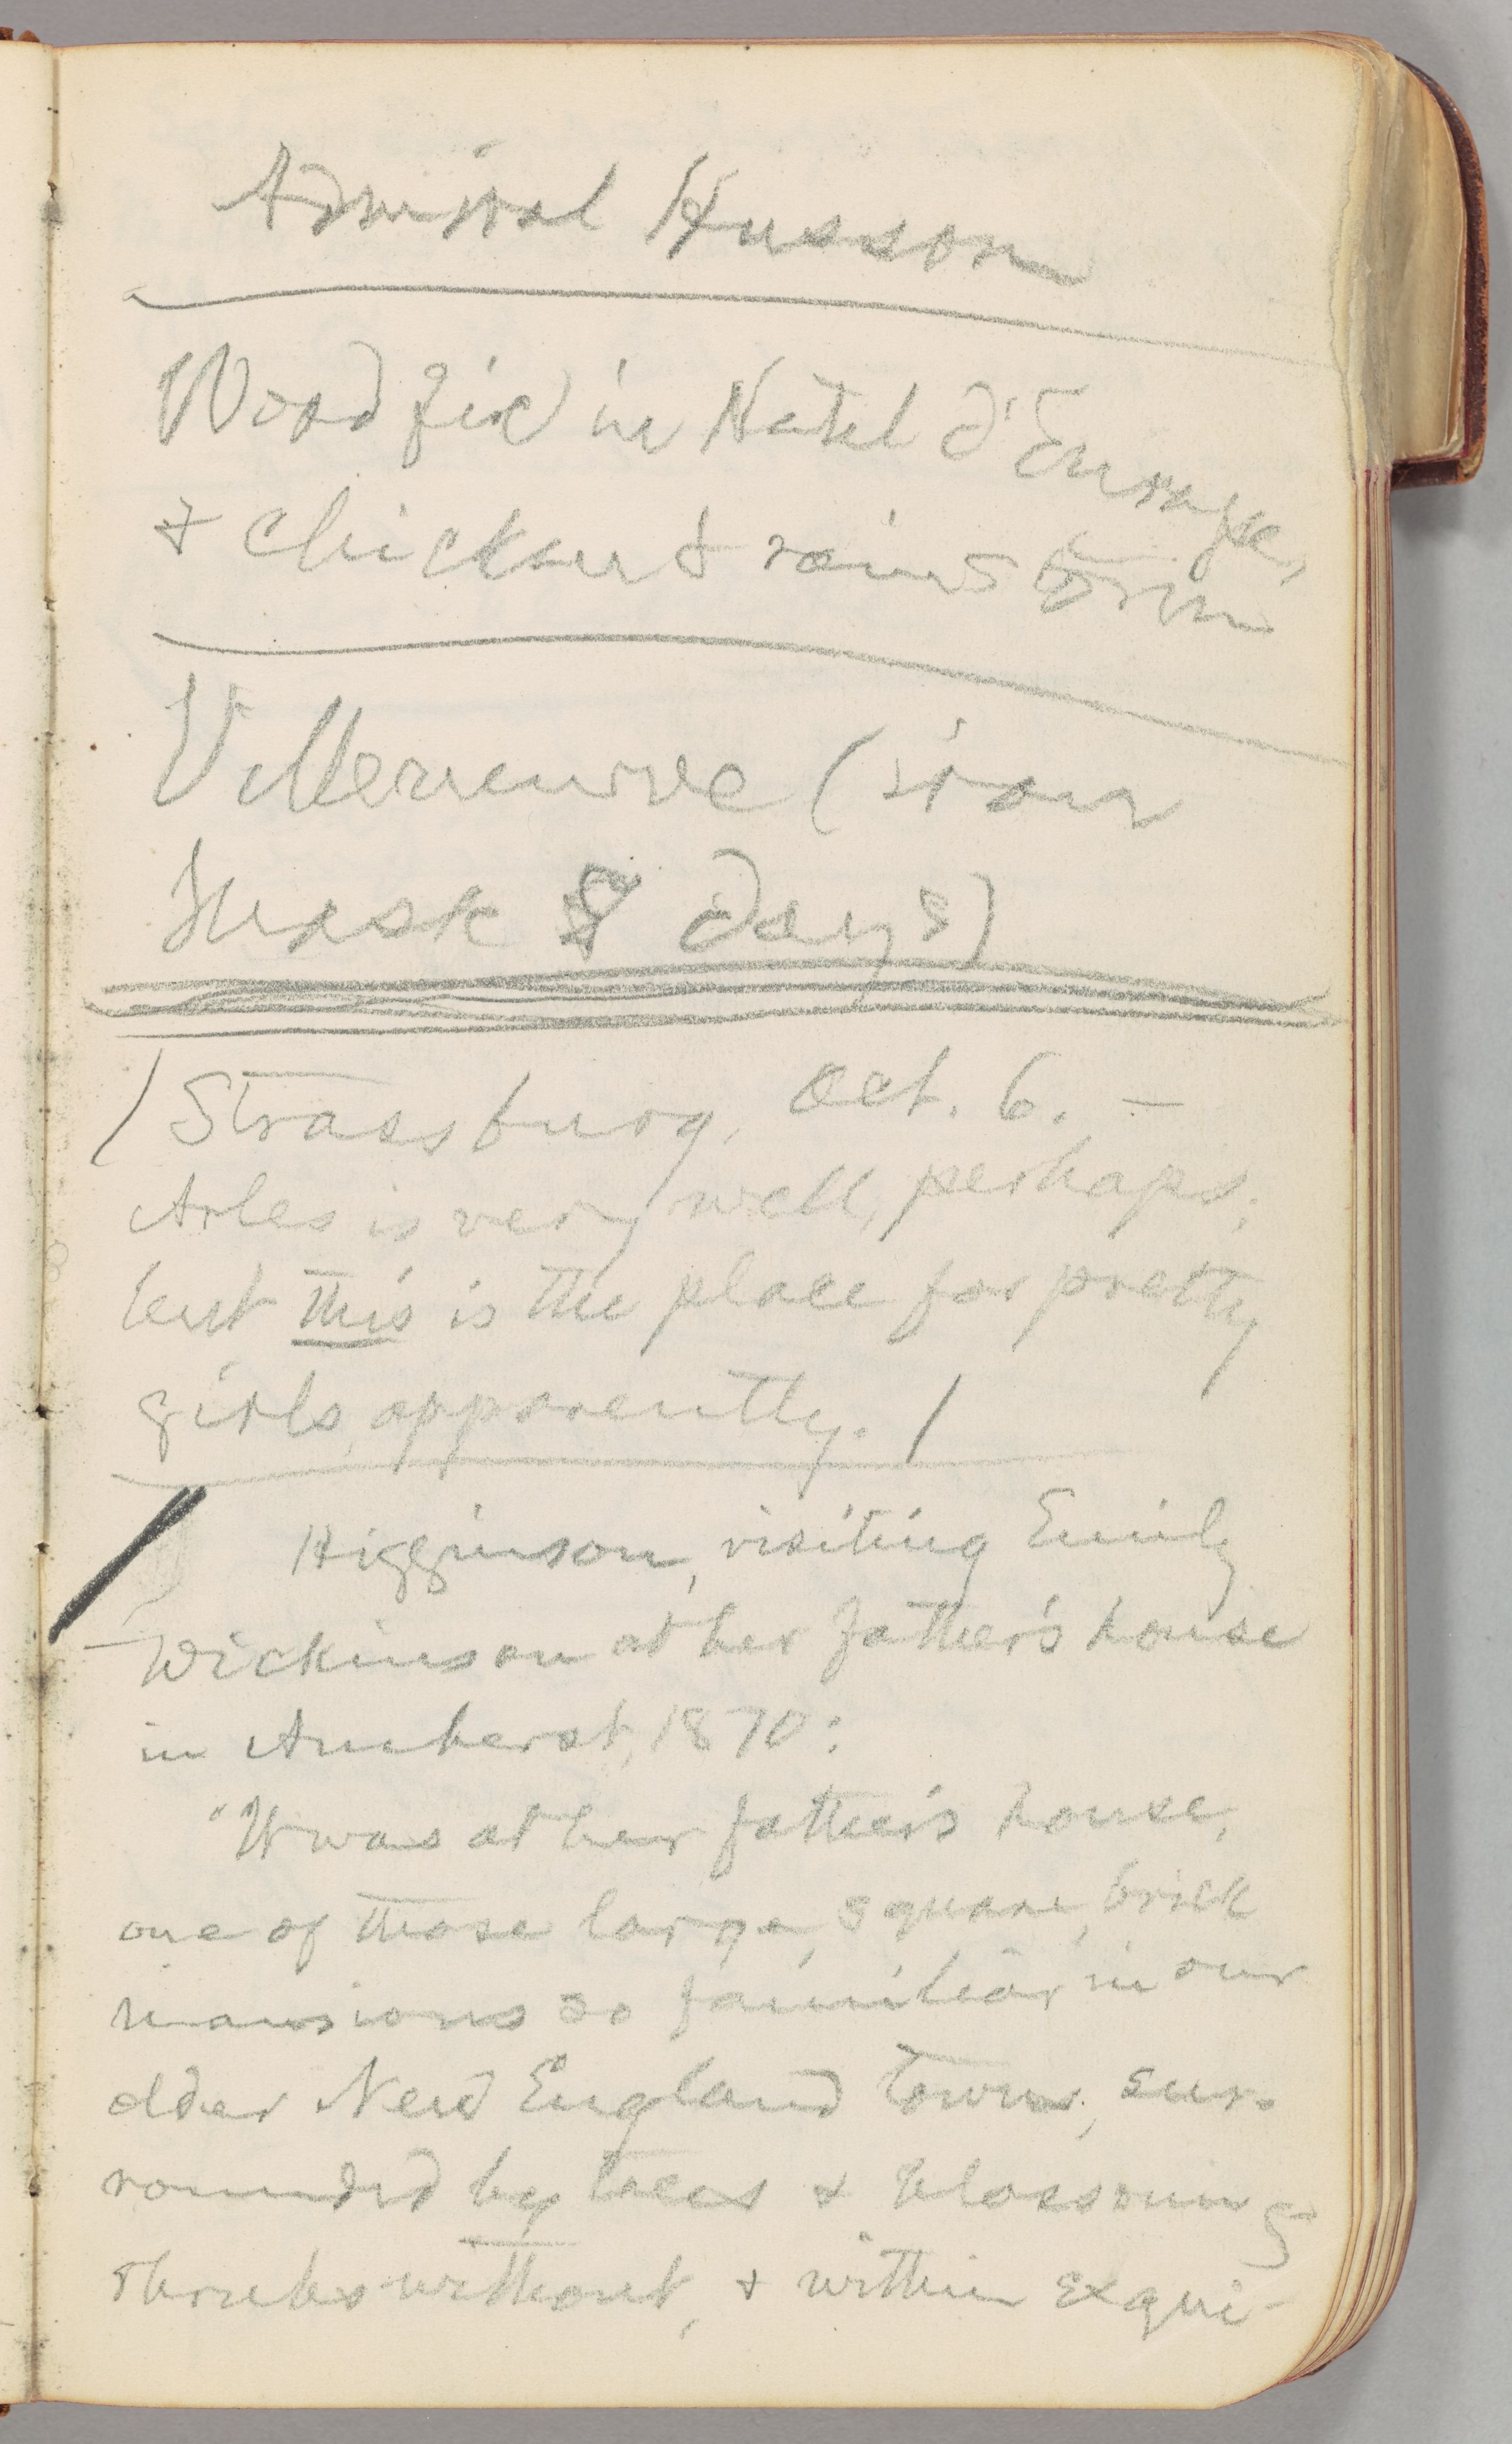 Admiral Husson
Wood fire in Hotel d'Europe,
& chicken & rainstorm
Villeneuve (iron
Mask 8 days)
/ Strassburg, Oct. 6. —
Arles is very well, perhaps,
but this is the place for pretty
girls, apparently. /
Higginson, visiting Emily
Dickinson at her father's house
in Amherst, 1870:
"It was at her father's house,
one of those large, square, brick
mansions so familiar in our
older New England towns, sur-
rounded by trees & blossoming
shrubs without, & within exqui-